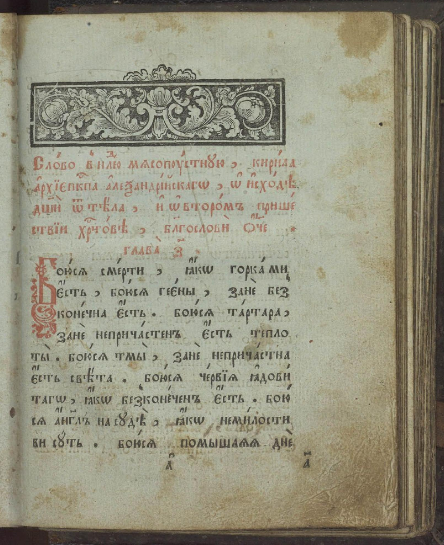 Сло́во в̾ нлю мѧсопꙋ́стнꙋю, кири́ла
а҆рхїе҆пкⷭ҇па а҆леѯандрі́йскагѡ, ѡ҆ и҆схо́дѣ
дш҃и ѿ тѣ́ла, и҆ ѡ҆ второ́мъ прише
ствїи хрⷭ҇то́вѣ, бл҃гослови́ ѻ҆́ч҃е.
глава̀ з҃
Бою́сѧ сме́рти, ꙗ҆́кѡ горка́ ми
є҆́сть, бою́сѧ гее́ны, занѐ без̾
коне́чна є҆́сть. бою́сѧ та́ртара,
занѐ неприча́стенъ є҆́сть тепло
ты̀. бою́сѧ тмы̀, занѐ неприча́стна
є҆́сть свѣ́та. бою́сѧ че́рвїѧ ꙗ҆дови́
тагѡ, ꙗ҆́кѡ безконе́ченъ є҆́сть. бою́
сѧ а҆́гг҃лъ на сꙋдѣ̀, ꙗ҆́кѡ неми́лости
ви сꙋ́ть. бою́сѧ помышлѧ́ѧ дн҃е
л҃ а҃